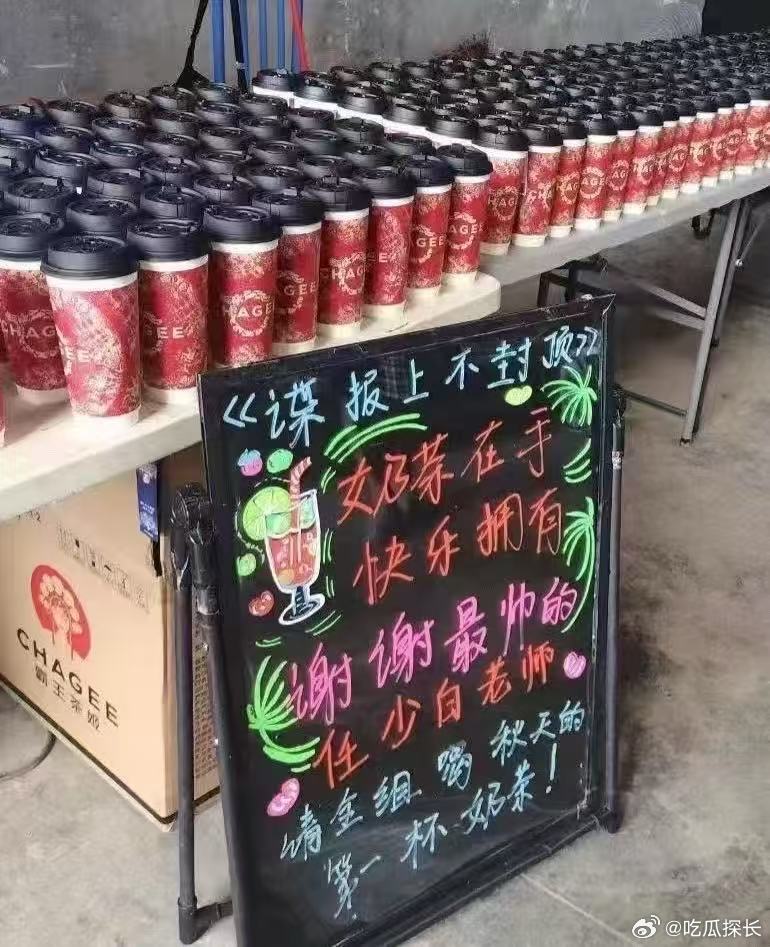 CHAGEE
CHAGEE
CHAGEE
CHAGEE
CHAGEE
霸王茶姬
<<谍报上不封顶>>
奶茶在手
快乐拥有
谢谢最帅的
任少白老师
请全组喝秋天的
第一杯奶茶!
@吃瓜探长